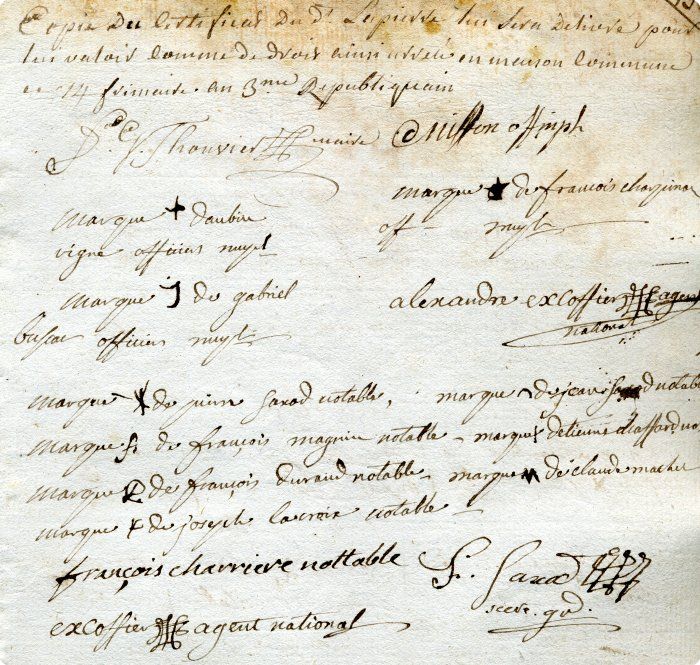 Copie Du Certificat Du dt. Lapierre lui sera Delivré pour
lui valoir Comme de droit ainsi arrêté en maison Commune
ce 14 frimaire an 3me Republiquain
Thouvier maire
marque de françois
off mupl
marque + daubin
vigne officier mupl
marque de gabriel
officier mupl
alexandre excoffier agent
national
marque de pierre Saxod notable, marque de jean Saxod notable
marque de françois magnin notable - marque detienne
marque de françois durand notable - marque de claude
marque de joseph lacroix notable -
françois charriere nottable
fr. Saxod
secre. gd.
excoffier agent national